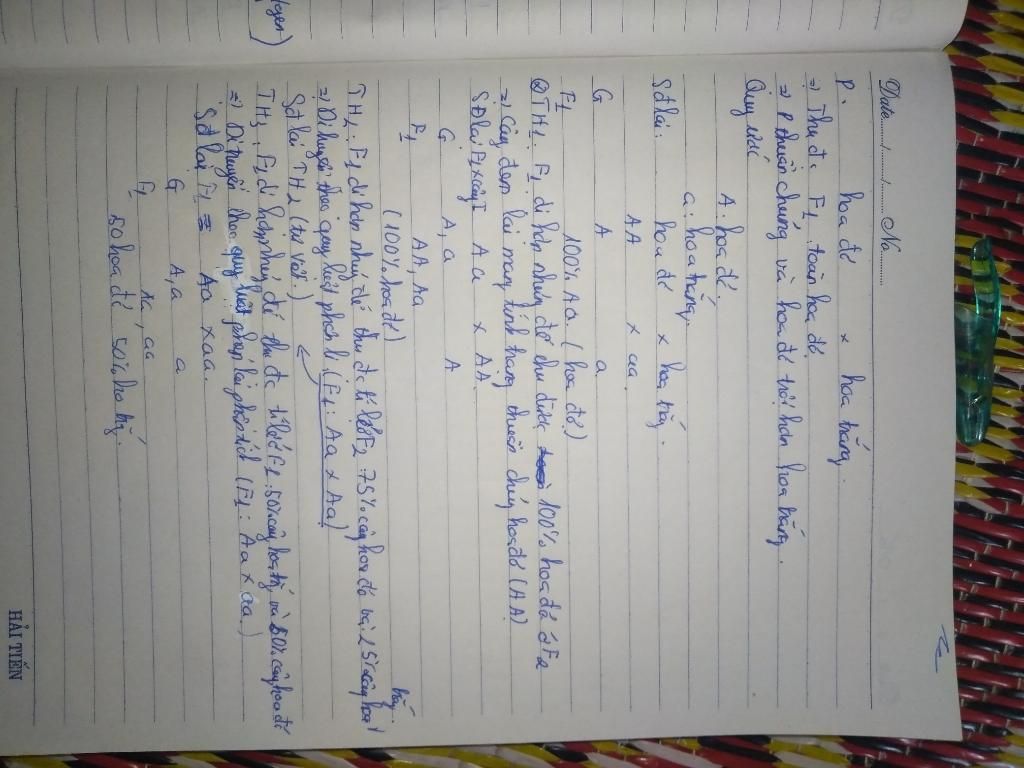 (gen)
Date....../....../...... No.........
P. hoa đỏ x hoa trắng.
⇒ Thu đc F1, toàn hoa đỏ
⇒ P thuần chủng và hoa đỏ trội hơn hoa trắng.
Quy ước
A: hoa đỏ.
a: hoa trắng.
Sđ lai: hoa đỏ x hoa trắng.
AA x aa
G A a
F1 100% Aa. (hoa đỏ)
TH1. F1 dị hợp nhưn để thu được 100% hoa đỏ ở F2
⇒ cây đem lai mang tính trạng thuần chủng hoa đỏ (AA)
SĐ lai F1 x cây I Aa x AA
G A, a A
F1 AA, Aa
(100% hoa đỏ)
TH2. F1 dị hợp để thu đc tỉ lệ F2 75% cây hoa đỏ và 25% cây hoa trắng.
⇒ Di truyền theo quy luật phân li (F1: Aa x Aa)
Sơ đồ lai TH2 (tự viết.)
TH3. F1 dị hợp để thu đc tỉ lệ F2 50% cây hoa trắng và 50% cây hoa đỏ
⇒ Di truyền theo quy luật phép lai phân tích (F1: Aa x aa.)
Sđ lai F1 Aa x aa.
G A, a a
F1 Aa, aa
50 hoa đỏ 50% hoa trắng.
HẢI TIẾN